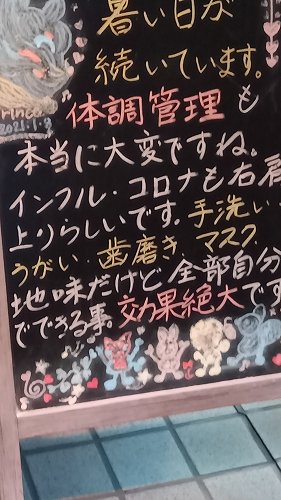 暑い日が
続いています。
体調管理も
本当に大変ですね。
インフル・コロナも右肩
上りらしいです。手洗い・
うがい・歯磨き、マスク、
地味だけど全部自分
でできる事。効果絶大です